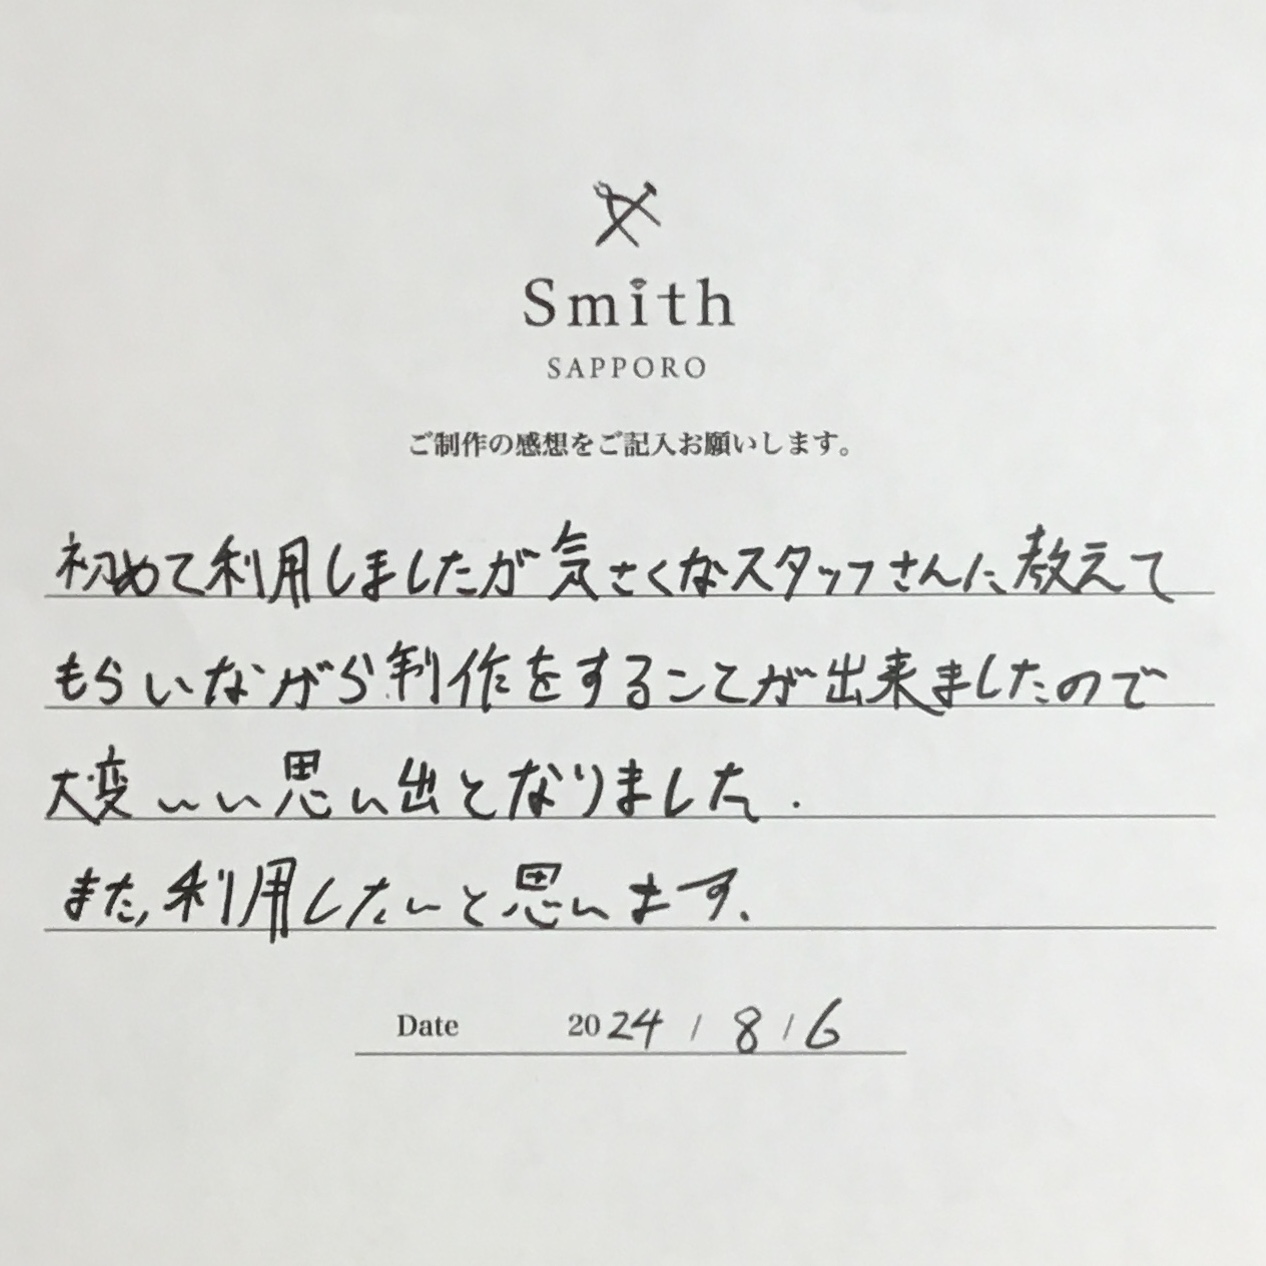 Smith
SAPPORO
ご制作の感想をご記入お願いします。
初めて利用しましたが気さくなスタッフさんに教えて
もらいながら制作をすることが出来ましたので
大変いい思い出となりました.
また,利用したいと思います、
Date 2024 / 8 / 6